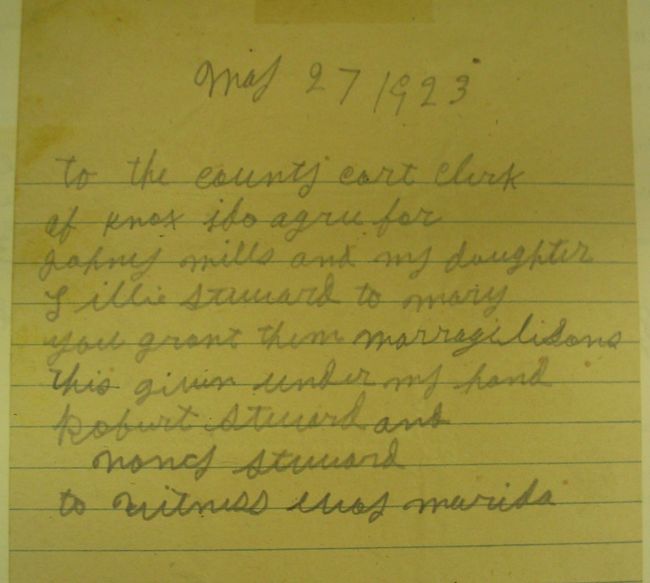 May 27 1923
to the county cort clerk
of knox ido agree for
johny mills and my daughter
Lillie Steward to mary
you grant them marrage lisons
this given under my hand
Robert Steward and
Nancy Steward
to witness marida